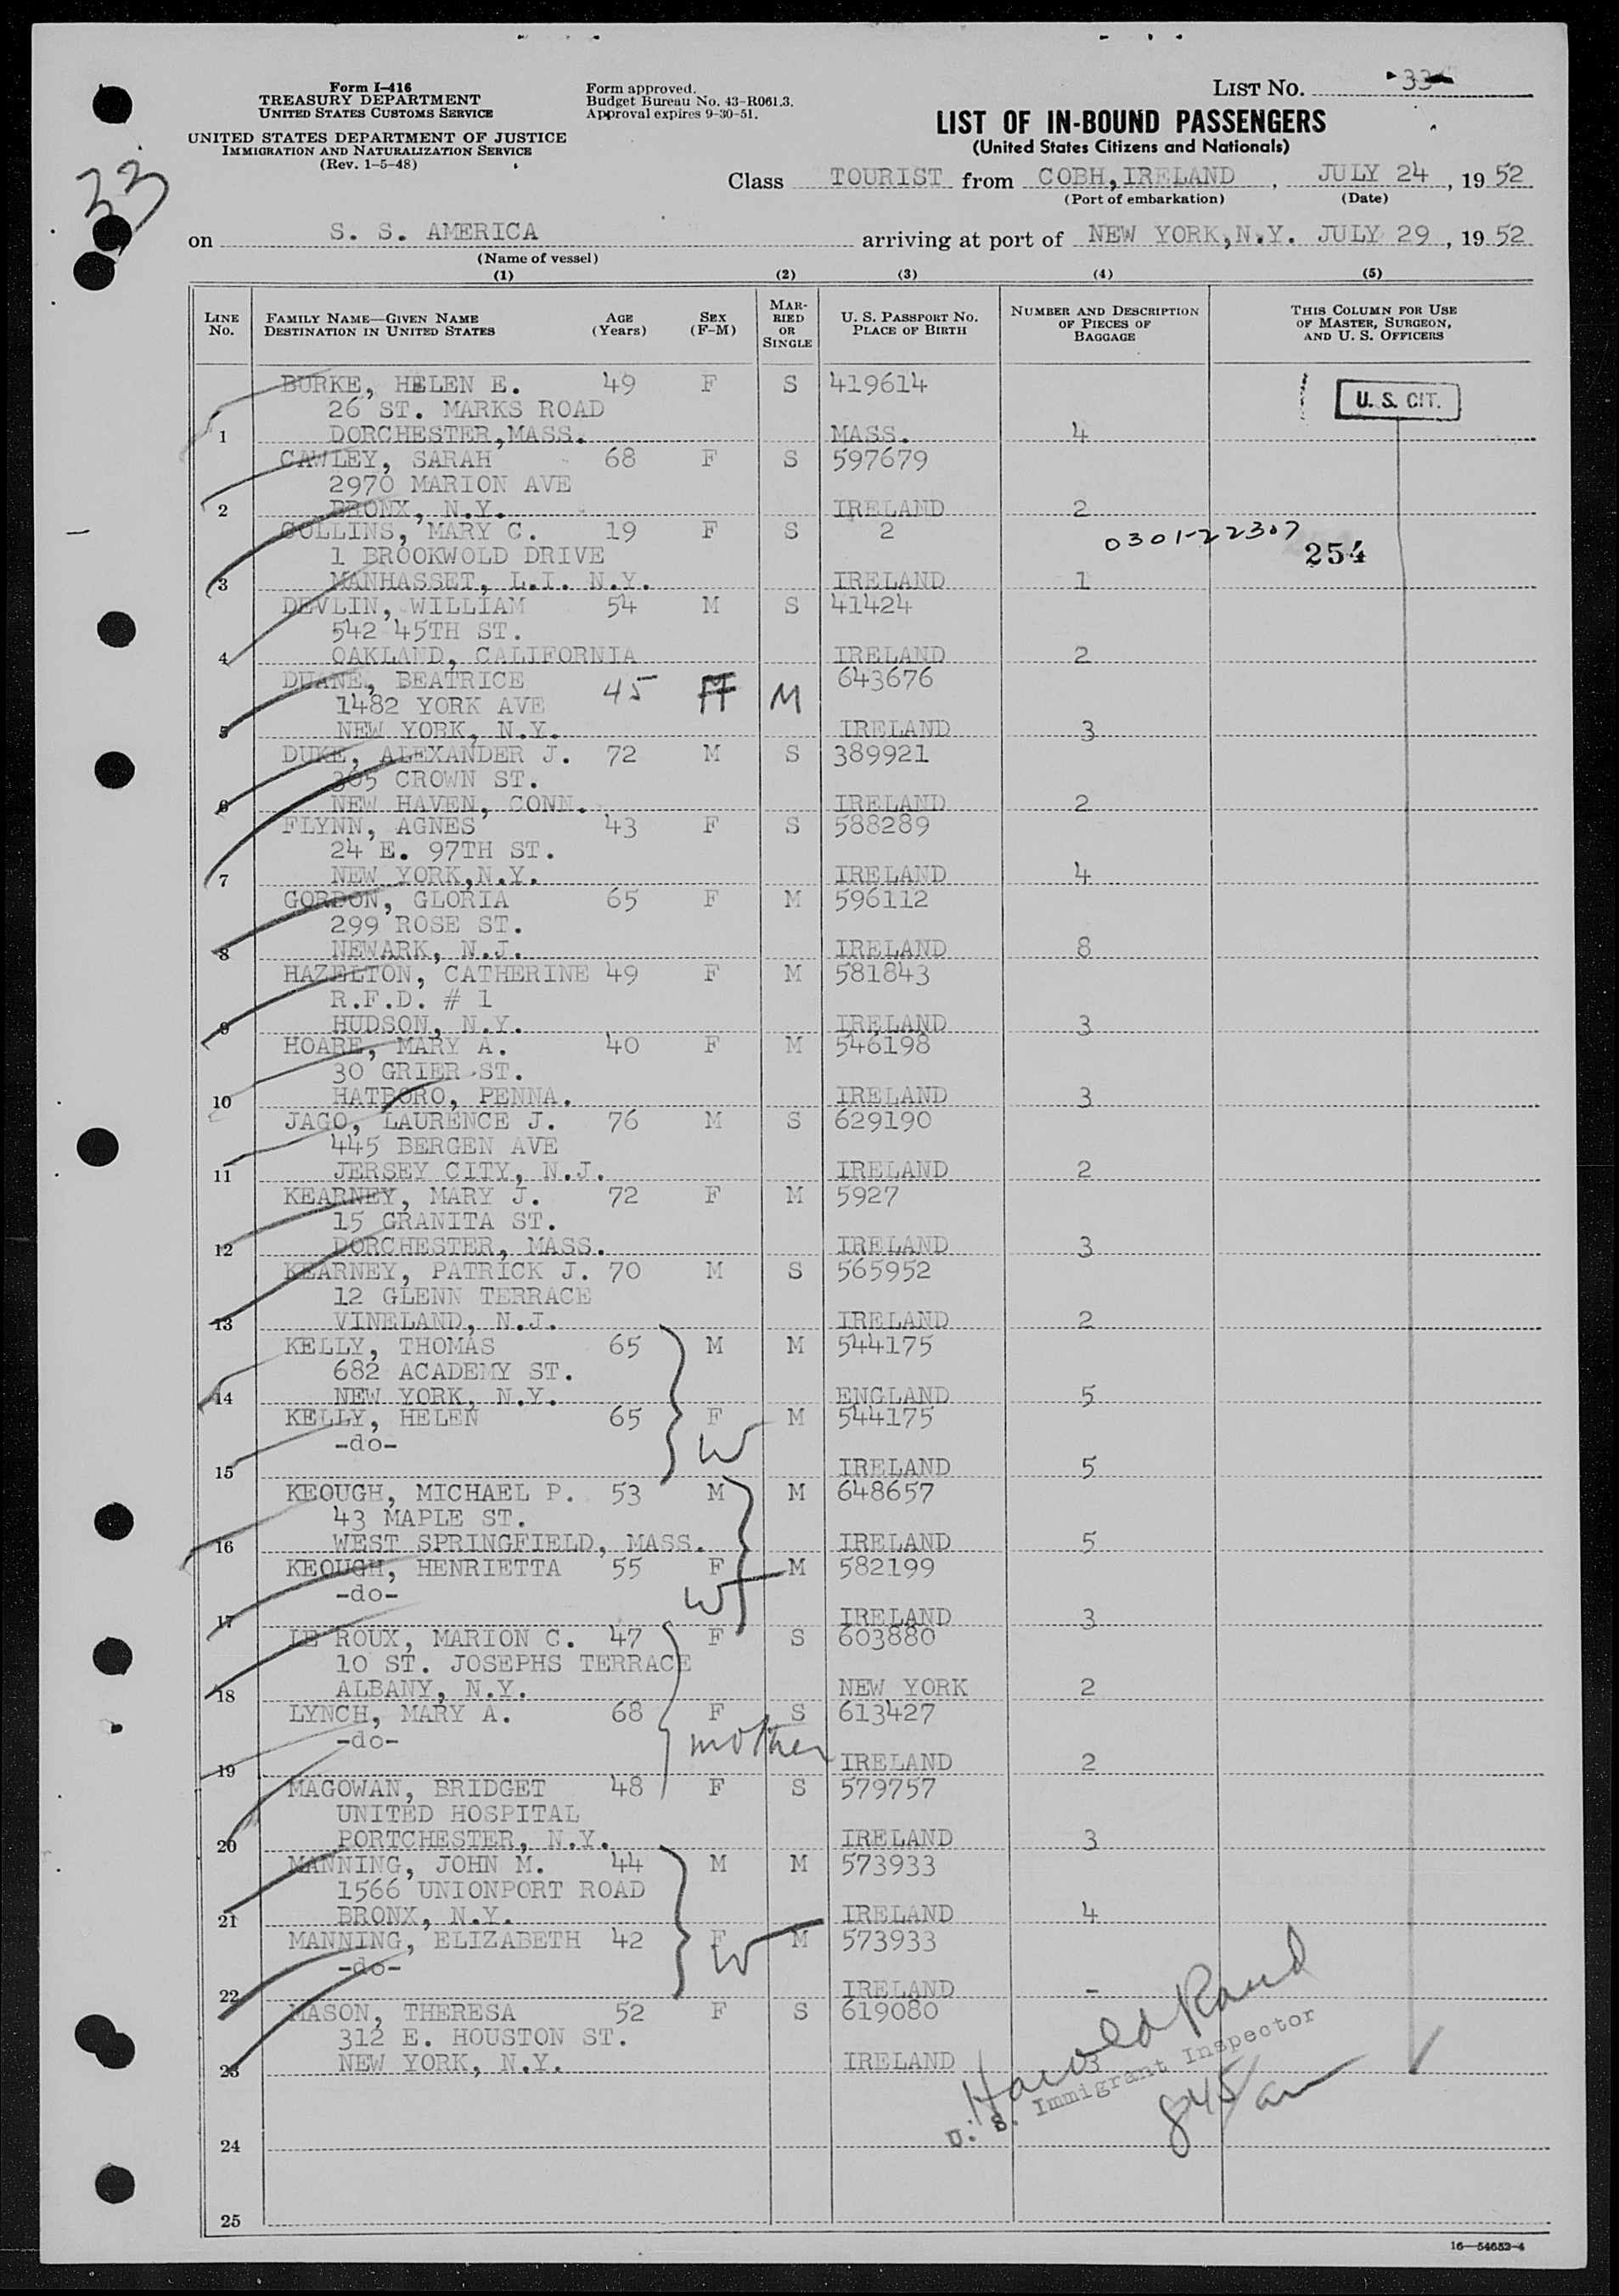 Form I-416
TREASURY DEPARTMENT
UNITED STATES CUSTOMS SERVICE
UNITED STATES DEPARTMENT OF JUSTICE
IMMIGRATION AND NATURALIZATION SERVICE
(Rev. 1-5-48)
Form approved.
Budget Bureau No. 43-R061.3.
Approval expires 9-30-51.
LIST No. 33
LIST OF IN-BOUND PASSENGERS
(United States Citizens and Nationals)
33
Class TOURIST from COBH, IRELAND, JULY 24, 1952
(Port of embarkation) (Date)
on S. S. AMERICA arriving at port of NEW YORK, N.Y. JULY 29, 1952
(Name of vessel)
(1) (2) (3) (4) (5)
LINE No. FAMILY NAME—GIVEN NAME DESTINATION IN UNITED STATES AGE (Years) SEX (F-M) MARRIED OR SINGLE U. S. PASSPORT NO. PLACE OF BIRTH NUMBER AND DESCRIPTION OF PIECES OF BAGGAGE THIS COLUMN FOR USE OF MASTER, SURGEON, AND U. S. OFFICERS
BURKE, HELEN E. 49 F S 419614 U. S. CIT.
26 ST. MARKS ROAD
1 DORCHESTER, MASS. MASS. 4
CAWLEY, SARAH 68 F S 597679
2970 MARION AVE
2 BRONX, N.Y. IRELAND 2
COLLINS, MARY C. 19 F S 2 0301-22307
1 BROOKWOLD DRIVE 254
3 MANHASSET, L.I. N.Y. IRELAND 1
DEVLIN, WILLIAM 54 M S 41424
542 45TH ST.
4 OAKLAND, CALIFORNIA IRELAND 2
DUANE, BEATRICE 45 F M 643676
1482 YORK AVE
5 NEW YORK, N.Y. IRELAND 3
DUKE, ALEXANDER J. 72 M S 389921
365 CROWN ST.
6 NEW HAVEN, CONN. IRELAND 2
FLYNN, AGNES 43 F S 588289
24 E. 97TH ST.
7 NEW YORK, N.Y. IRELAND 4
GORDON, GLORIA 65 F M 596112
299 ROSE ST.
8 NEWARK, N.J. IRELAND 8
HAZELTON, CATHERINE 49 F M 581843
R.F.D. # 1
9 HUDSON, N.Y. IRELAND 3
HOARE, MARY A. 40 F M 546198
30 GRIER ST.
10 HATBORO, PENNA. IRELAND 3
JAGO, LAURENCE J. 76 M S 629190
445 BERGEN AVE
11 JERSEY CITY, N.J. IRELAND 2
KEARNEY, MARY J. 72 F M 5927
15 GRANITA ST.
12 DORCHESTER, MASS. IRELAND 3
KEARNEY, PATRICK J. 70 M S 565952
12 GLENN TERRACE
13 VINELAND, N.J. IRELAND 2
KELLY, THOMAS 65 M M 544175
682 ACADEMY ST.
14 NEW YORK, N.Y. ENGLAND 5
KELLY, HELEN 65 F M 544175
-do- W
15 IRELAND 5
KEOUGH, MICHAEL P. 53 M M 648657
43 MAPLE ST.
16 WEST SPRINGFIELD, MASS. IRELAND 5
KEOUGH, HENRIETTA 55 F M 582199
-do- W
17 IRELAND 3
LE ROUX, MARION C. 47 F S 603880
10 ST. JOSEPHS TERRACE
18 ALBANY, N.Y. NEW YORK 2
LYNCH, MARY A. 68 F S 613427
-do- mother
19 IRELAND 2
MAGOWAN, BRIDGET 48 F S 579757
UNITED HOSPITAL
20 PORTCHESTER, N.Y. IRELAND 3
MANNING, JOHN M. 44 M M 573933
1566 UNIONPORT ROAD
21 BRONX, N.Y. IRELAND 4
MANNING, ELIZABETH 42 F M 573933
-do- W
22 IRELAND -
MASON, THERESA 52 F S 619080
312 E. HOUSTON ST.
23 NEW YORK, N.Y. IRELAND 3
Harold Rand
U. S. Immigrant Inspector
845 am
24
25
16—54652-4